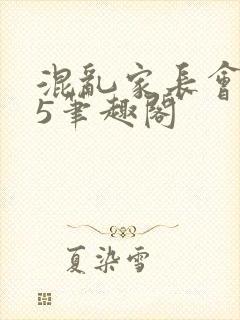 混亂家長會
5筆趣閣
夏染雪